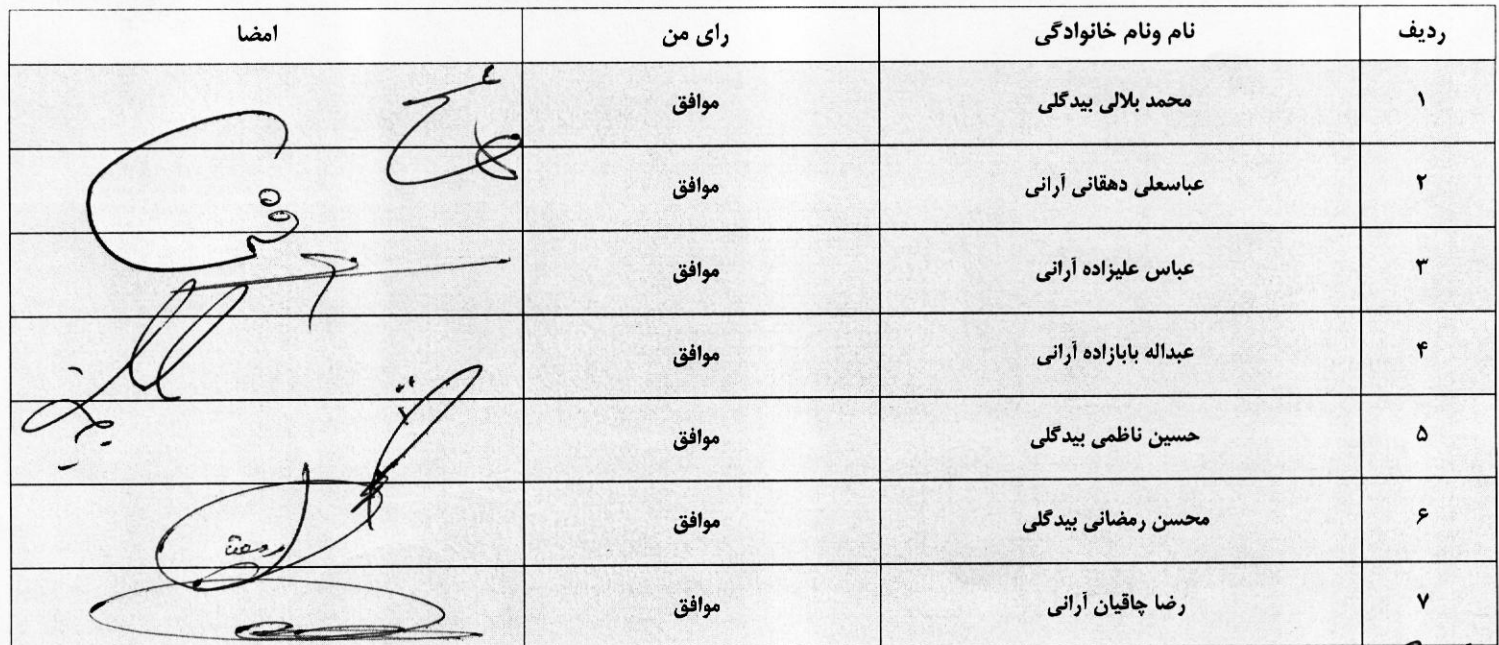 ردیف نام ونام خانوادگی رای من امضا
۱ محمد بلالی بیدگلی موافق
۲ عباسعلی دهقانی آرانی موافق
۳ عباس علیزاده آرانی موافق
۴ عبداله بابازاده آرانی موافق
۵ حسین ناظمی بیدگلی موافق
۶ محسن رمضانی بیدگلی موافق
۷ رضا چاقیان آرانی موافق